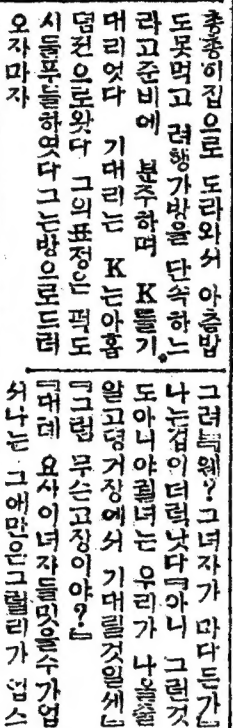 총총이집으로 도라와서 아츰밥
도못먹고 려행가방을 단속하느
라고준비에 분주하며 K를기
대리엇다 기대리는 K는아홉
덤컨으로왓다 그의표정은 퍽도
시들푸들하엿다그는방으로드러
오자마자
그려늬웨? 그녀자가 마다든가』
나는겁이더럭낫다『아니 그런것
도아니야궐녀는 우리가 나올줄
알고뎡거장에서 기대릴것일세』
『그럼 무슨고장이야?』
『대톄 요사이녀자들밋을수가업
서나는 그애만은그럴리가 업스